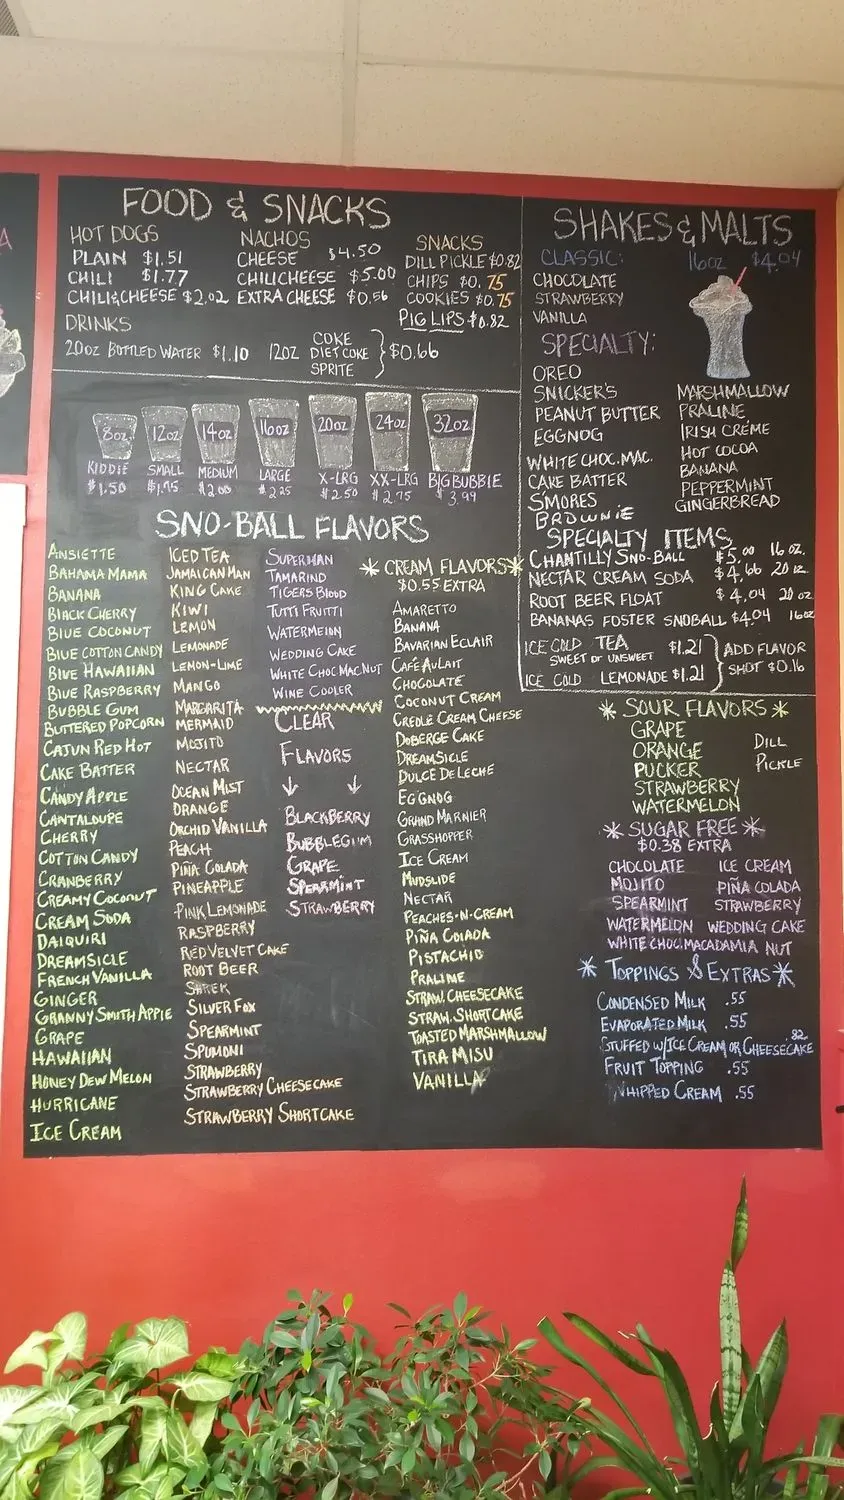 A
FOOD & SNACKS
HOT DOGS
PLAIN $1.51
CHILI $1.77
CHILI&CHEESE $2.02
NACHOS
CHEESE $4.50
CHILICHEESE $5.00
EXTRA CHEESE $0.56
SNACKS
DILL PICKLE $0.82
CHIPS $0.75
COOKIES $0.75
PIG LIPS $0.82
DRINKS
20OZ BOTTLED WATER $1.10
12OZ COKE
DIET COKE $0.66
SPRITE
8OZ 12OZ 14OZ 16OZ 20OZ 24OZ 32OZ
KIDDIE SMALL MEDIUM LARGE X-LRG XX-LRG BIG BUBBIE
$1.50 $1.75 $2.00 $2.25 $2.50 $2.75 $3.99
SNO-BALL FLAVORS
ANSIETTE
BAHAMA MAMA
BANANA
BLACK CHERRY
BLUE COCONUT
BLUE COTTON CANDY
BLUE HAWAIIAN
BLUE RASPBERRY
BUBBLE GUM
BUTTERED POPCORN
CAJUN RED HOT
CAKE BATTER
CANDY APPLE
CANTALOUPE
CHERRY
COTTON CANDY
CRANBERRY
CREAMY COCONUT
CREAM SODA
DAIQUIRI
DREAMSICLE
FRENCH VANILLA
GINGER
GRANNY SMITH APPLE
GRAPE
HAWAIIAN
HONEY DEW MELON
HURRICANE
ICE CREAM
ICED TEA
JAMAICAN MAN
KING CAKE
KIWI
LEMON
LEMONADE
LEMON-LIME
MANGO
MARGARITA
MERMAID
MOJITO
NECTAR
OCEAN MIST
ORANGE
ORCHID VANILLA
PEACH
PIÑA COLADA
PINEAPPLE
PINK LEMONADE
RASPBERRY
RED VELVET CAKE
ROOT BEER
SHREK
SILVER FOX
SPEARMINT
SPUMONI
STRAWBERRY
STRAWBERRY CHEESECAKE
STRAWBERRY SHORTCAKE
SUPERMAN
TAMARIND
TIGERS BLOOD
TUTTI FRUITTI
WATERMELON
WEDDING CAKE
WHITE CHOC. MAC. NUT
WINE COOLER
CLEAR
FLAVORS
BLACKBERRY
BUBBLEGUM
GRAPE
SPEARMINT
STRAWBERRY
* CREAM FLAVORS *
$0.55 EXTRA
AMARETTO
BANANA
BAVARIAN ECLAIR
CAFÉ AU LAIT
CHOCOLATE
COCONUT CREAM
CREOLE CREAM CHEESE
DOBERGE CAKE
DREAMSICLE
DULCE DE LECHE
EGGNOG
GRAND MARNIER
GRASSHOPPER
ICE CREAM
MUDSLIDE
NECTAR
PEACHES-N-CREAM
PIÑA COLADA
PISTACHIO
PRALINE
STRAW. CHEESECAKE
STRAW. SHORTCAKE
TOASTED MARSHMALLOW
TIRA MISU
VANILLA
SHAKES & MALTS
CLASSIC: 16OZ $4.04
CHOCOLATE
STRAWBERRY
VANILLA
SPECIALTY:
OREO
SNICKER'S
PEANUT BUTTER
EGGNOG
WHITE CHOC. MAC.
CAKE BATTER
SMORES
BROWNIE
MARSHMALLOW
PRALINE
IRISH CRÉME
HOT COCOA
BANANA
PEPPERMINT
GINGERBREAD
SPECIALTY ITEMS
CHANTILLY SNO-BALL $5.00 16 OZ.
NECTAR CREAM SODA $4.66 20 OZ
ROOT BEER FLOAT $4.04 20 OZ
BANANAS FOSTER SNOBALL $4.04 16OZ
ICE COLD TEA $1.21
SWEET OR UNSWEET
ICE COLD LEMONADE $1.21
ADD FLAVOR
SHOT $0.16
* SOUR FLAVORS *
GRAPE
ORANGE
PUCKER
STRAWBERRY
WATERMELON
DILL
PICKLE
* SUGAR FREE *
$0.38 EXTRA
CHOCOLATE ICE CREAM
MOJITO PIÑA COLADA
SPEARMINT STRAWBERRY
WATERMELON WEDDING CAKE
WHITE CHOC. MACADAMIA NUT
* TOPPINGS & EXTRAS *
CONDENSED MILK .55
EVAPORATED MILK .55
STUFFED W/ICE CREAM OR CHEESECAKE .82
FRUIT TOPPING .55
WHIPPED CREAM .55